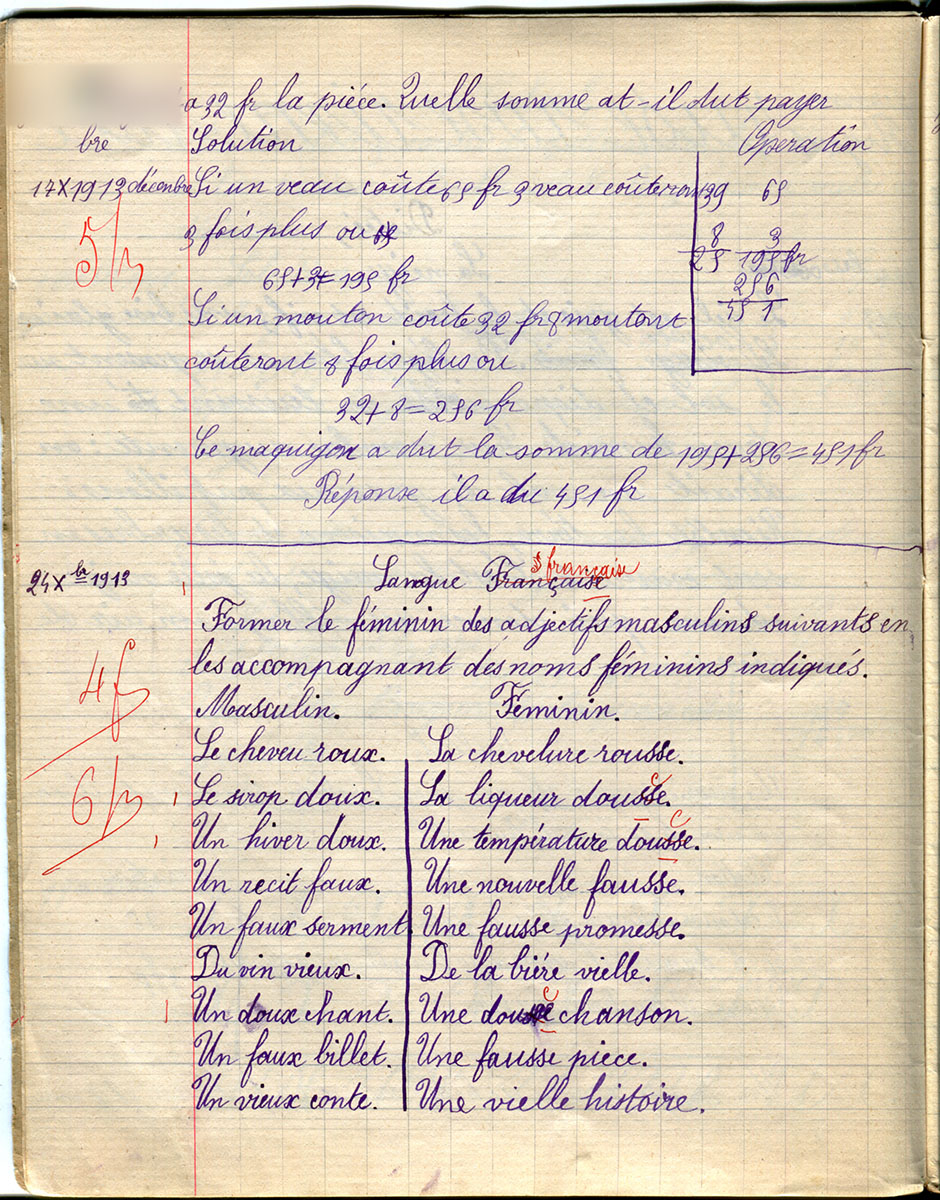 a 32 fr la piéce. Quelle somme at-il dut payer
bre Solution Operation
17X1913 décembre Si un veau coûte 65 fr 3 veau coûteron
3 fois plus ou
65+3= 195 fr
Si un mouton coûte 32 fr 8 moutont
coûteront 8 fois plus ou
32+8=256 fr
Ce maquigon a dut la somme de 195+256=451 fr
Réponse il a du 451 fr
39 65
8 3
25 195 fr
256
451
5
24 Xbr 1913 Langue Française française
Former le féminin des adjectifs masculins suivants en
les accompagnant des noms féminins indiqués.
4f
Masculin. Féminin.
Le cheveu roux. La chevelure rousse.
6
Le sirop doux. La liqueur dousse. c
Un hiver doux. Une température dousse. c
Un recit faux. Une nouvelle fausse.
Un faux serment Une fausse promesse.
Du vin vieux. De la biére vielle.
Un doux chant. Une dousse chanson. c
Un faux billet. Une fausse piece.
Un vieux conte. Une vielle histoire.